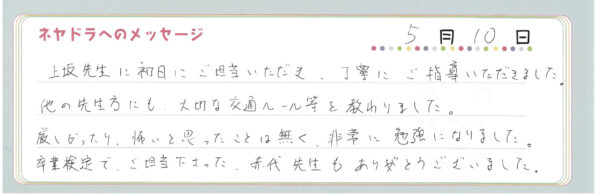 ネヤドラへのメッセージ
5月10日
上坂先生に初日にご担当いただき、丁寧にご指導いただきました。
他の先生方にも、大切な交通ルール等を教わりました。
厳しかったり、怖いと思ったことは無く、非常に勉強になりました。
卒業検定で、ご担当下さった、赤代先生もありがとうございました。